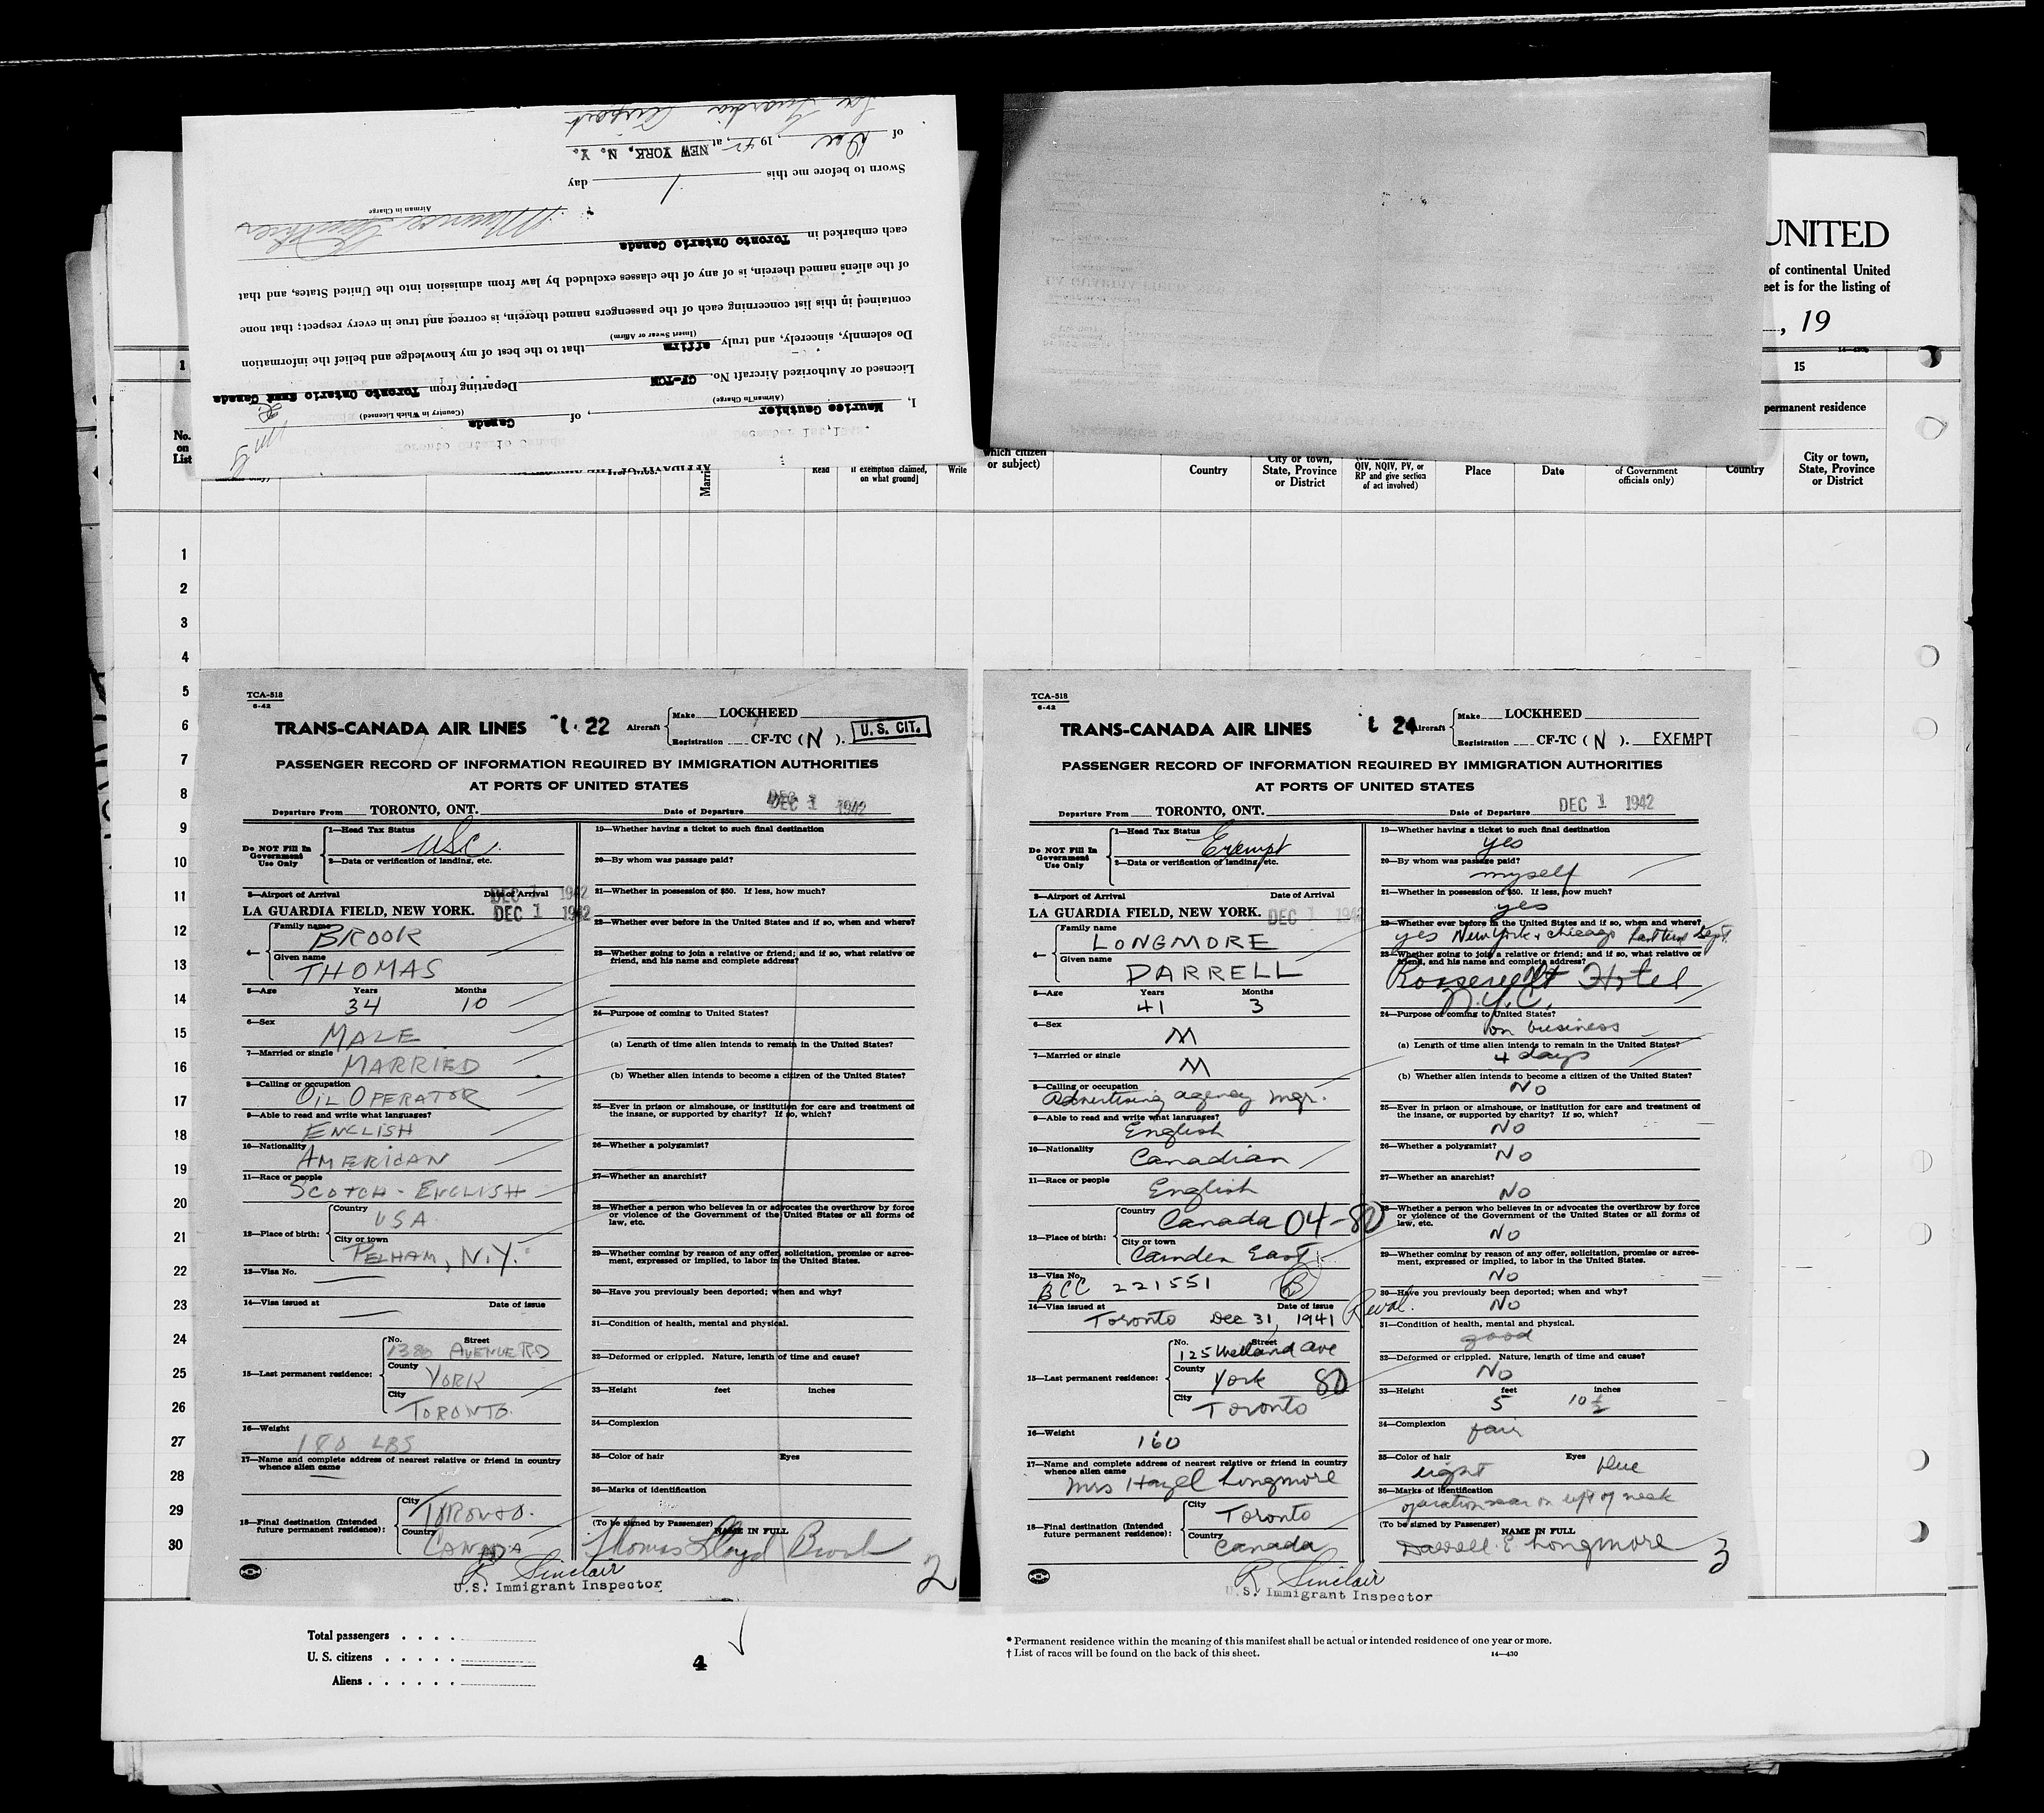 I, Maurice Gauthier, of Canada
(Airman in Charge) (Country in Which Licensed)
Licensed or Authorized Aircraft No. CF-TCN Departing from Toronto Ontario Canada
Do solemnly, sincerely, and truly affirm that to the best of my knowledge and belief the information
(Insert Swear or Affirm)
contained in this list concerning each of the passengers named therein, is correct and true in every respect; that none
of the aliens named therein, is of any of the classes excluded by law from admission into the United States, and that
each embarked in Toronto Ontario Canada
Maurice Gauthier
Airman in Charge
Sworn to before me this 1 day
of Dec, 1942, at NEW YORK, N. Y.
La Guardia Airport
UNITED
of continental United
eet is for the listing of
, 19
1
15
permanent residence
No.
on
List
Read
If exemption claimed,
on what ground]
Write
which citizen
or subject)
Country
City or town,
State, Province
or District
QIV, NQIV, PV, or
RP and give section
of act involved)
Place
Date
of Government
officials only)
Country
City or town,
State, Province
or District
1
2
3
4
5
6
7
8
9
10
11
12
13
14
15
16
17
18
19
20
21
22
23
24
25
26
27
28
29
30
TCA-518
6-42
TRANS-CANADA AIR LINES 22 Aircraft Make LOCKHEED
Registration CF-TC ( N ). U. S. CIT.
PASSENGER RECORD OF INFORMATION REQUIRED BY IMMIGRATION AUTHORITIES
AT PORTS OF UNITED STATES
Departure From TORONTO, ONT. Date of Departure DEC 1 1942
Do NOT Fill In
Government
Use Only
1—Head Tax Status
USC
2—Data or verification of landing, etc.
3—Airport of Arrival Date of Arrival
LA GUARDIA FIELD, NEW YORK. DEC 1 1942
4— Family name
BROOK
Given name
THOMAS
5—Age Years Months
34 10
6—Sex
MALE
7—Married or single
MARRIED
8—Calling or occupation
OIL OPERATOR
9—Able to read and write what languages?
ENGLISH
10—Nationality
AMERICAN
11—Race or people
SCOTCH - ENGLISH
12—Place of birth: Country
USA
City or town
PELHAM, N.Y.
13—Visa No.
14—Visa issued at Date of issue
15—Last permanent residence: No. Street
AVENUE RD
County
YORK
City
TORONTO
16—Weight
180 LBS
17—Name and complete address of nearest relative or friend in country
whence alien came
18—Final destination (Intended
future permanent residence):
City
TORONTO.
Country
CANADA
19—Whether having a ticket to such final destination
20—By whom was passage paid?
21—Whether in possession of $50. If less, how much?
22—Whether ever before in the United States and if so, when and where?
23—Whether going to join a relative or friend; and if so, what relative or
friend, and his name and complete address?
24—Purpose of coming to United States?
(a) Length of time alien intends to remain in the United States?
(b) Whether alien intends to become a citizen of the United States?
25—Ever in prison or almshouse, or institution for care and treatment of
the insane, or supported by charity? If so, which?
26—Whether a polygamist?
27—Whether an anarchist?
28—Whether a person who believes in or advocates the overthrow by force
or violence of the Government of the United States or all forms of
law, etc.
29—Whether coming by reason of any offer, solicitation, promise or agree-
ment, expressed or implied, to labor in the United States.
30—Have you previously been deported; when and why?
31—Condition of health, mental and physical.
32—Deformed or crippled. Nature, length of time and cause?
33—Height feet inches
34—Complexion
35—Color of hair Eyes
36—Marks of identification
(To be signed by Passenger)
NAME IN FULL
Thomas Lloyd Brook
R Sinclair
U.S. Immigrant Inspector
2
TCA-518
6-42
TRANS-CANADA AIR LINES 24 Aircraft Make LOCKHEED
Registration CF-TC ( N ). EXEMPT
PASSENGER RECORD OF INFORMATION REQUIRED BY IMMIGRATION AUTHORITIES
AT PORTS OF UNITED STATES
Departure From TORONTO, ONT. Date of Departure DEC 1 1942
Do NOT Fill In
Government
Use Only
1—Head Tax Status
Exempt
2—Data or verification of landing, etc.
3—Airport of Arrival Date of Arrival
LA GUARDIA FIELD, NEW YORK. DEC 1 1942
4— Family name
LONGMORE
Given name
DARRELL
5—Age Years Months
41 3
6—Sex
M
7—Married or single
M
8—Calling or occupation
Advertising agency mgr.
9—Able to read and write what languages?
English
10—Nationality
Canadian
11—Race or people
English
12—Place of birth: Country
Canada 04-80
City or town
Camden East
13—Visa No.
BCC 221551 B
14—Visa issued at Date of issue
Toronto Dec 31, 1941 Reval.
15—Last permanent residence: No. Street
125 Welland Ave
County
York 80
City
Toronto
16—Weight
160
17—Name and complete address of nearest relative or friend in country
whence alien came
Mrs Hazel Longmore
18—Final destination (Intended
future permanent residence):
City
Toronto
Country
Canada
19—Whether having a ticket to such final destination
yes
20—By whom was passage paid?
myself
21—Whether in possession of $50. If less, how much?
yes
22—Whether ever before in the United States and if so, when and where?
yes New York + Chicago last time Sept.
23—Whether going to join a relative or friend; and if so, what relative or
friend, and his name and complete address?
Roosevelt Hotel
N.Y.C.
24—Purpose of coming to United States?
on business
(a) Length of time alien intends to remain in the United States?
4 days
(b) Whether alien intends to become a citizen of the United States?
No
25—Ever in prison or almshouse, or institution for care and treatment of
the insane, or supported by charity? If so, which?
No
26—Whether a polygamist?
No
27—Whether an anarchist?
No
28—Whether a person who believes in or advocates the overthrow by force
or violence of the Government of the United States or all forms of
law, etc.
No
29—Whether coming by reason of any offer, solicitation, promise or agree-
ment, expressed or implied, to labor in the United States.
No
30—Have you previously been deported; when and why?
No
31—Condition of health, mental and physical.
good
32—Deformed or crippled. Nature, length of time and cause?
No
33—Height feet inches
5 10 ½
34—Complexion
fair
35—Color of hair Eyes
light blue
36—Marks of identification
operation scar on left of neck
(To be signed by Passenger)
NAME IN FULL
Darrell E Longmore
R Sinclair
U.S. Immigrant Inspector
3
Total passengers . . . .
U. S. citizens . . . . .
Aliens . . . . . .
4
* Permanent residence within the meaning of this manifest shall be actual or intended residence of one year or more.
† List of races will be found on the back of this sheet.
14—430